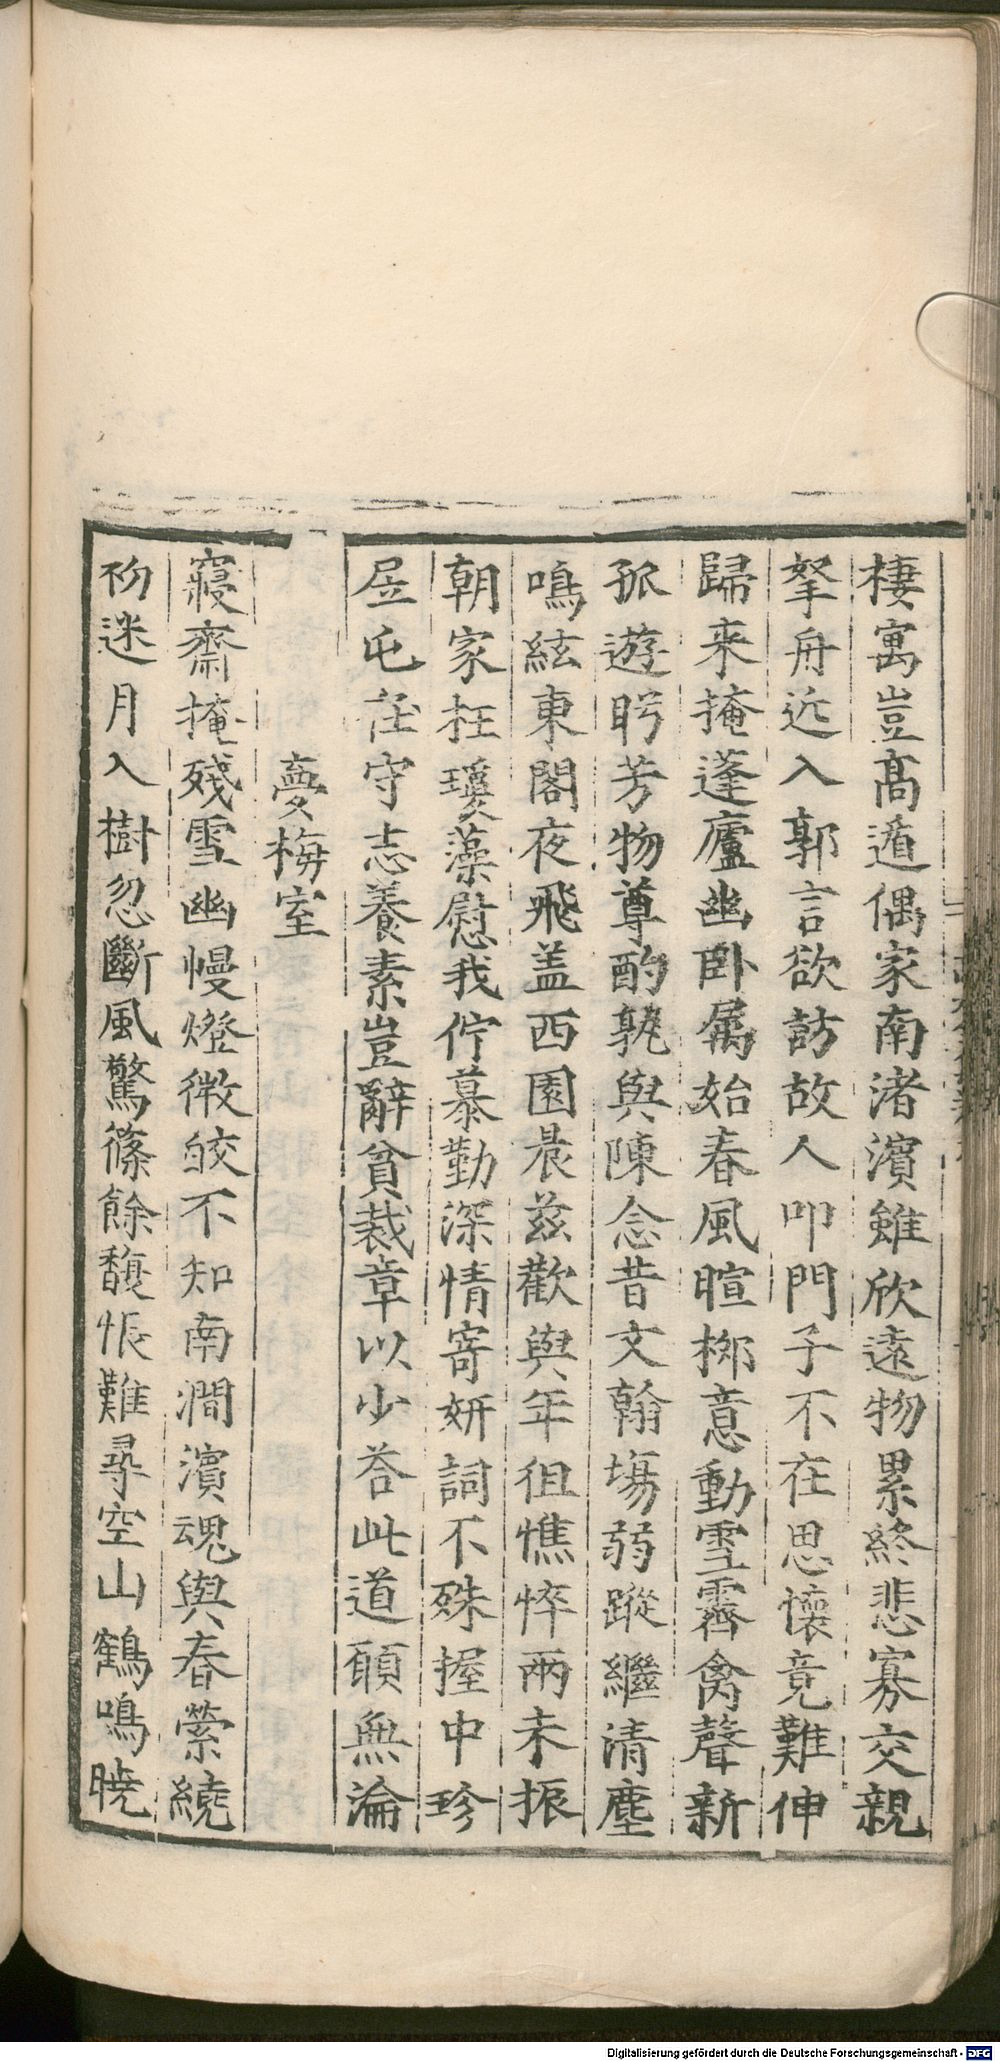 棲寓豈髙遁偶家南渚濱雖欣遠物累終悲寡交親
拏舟近入郭言欲訪故人叩門子不在思懷竟難伸
歸来掩蓬廬幽卧属始春風暄桞意動雪霽禽聲新
孤遊眄芳物尊酌孰與陳念昔文翰塲弱蹤繼清塵
鳴絃東閣夜飛盖西園晨兹歡與年徂憔悴兩未振
朝家枉瓊藻慰我佇慕勤深情寄妍詞不殊握中珍
屈屯在守志養素豈辭貧裁章以少荅此道願無淪
夢梅室
寢齋掩殘雪幽幔燈微皎不知南澗濱魂與春縈繞
初迷月入樹忽斷風驚篠餘馥悵難尋空山鶴鳴曉
Digitalisierung gefördert durch die Deutsche Forschungsgemeinschaft - DFG